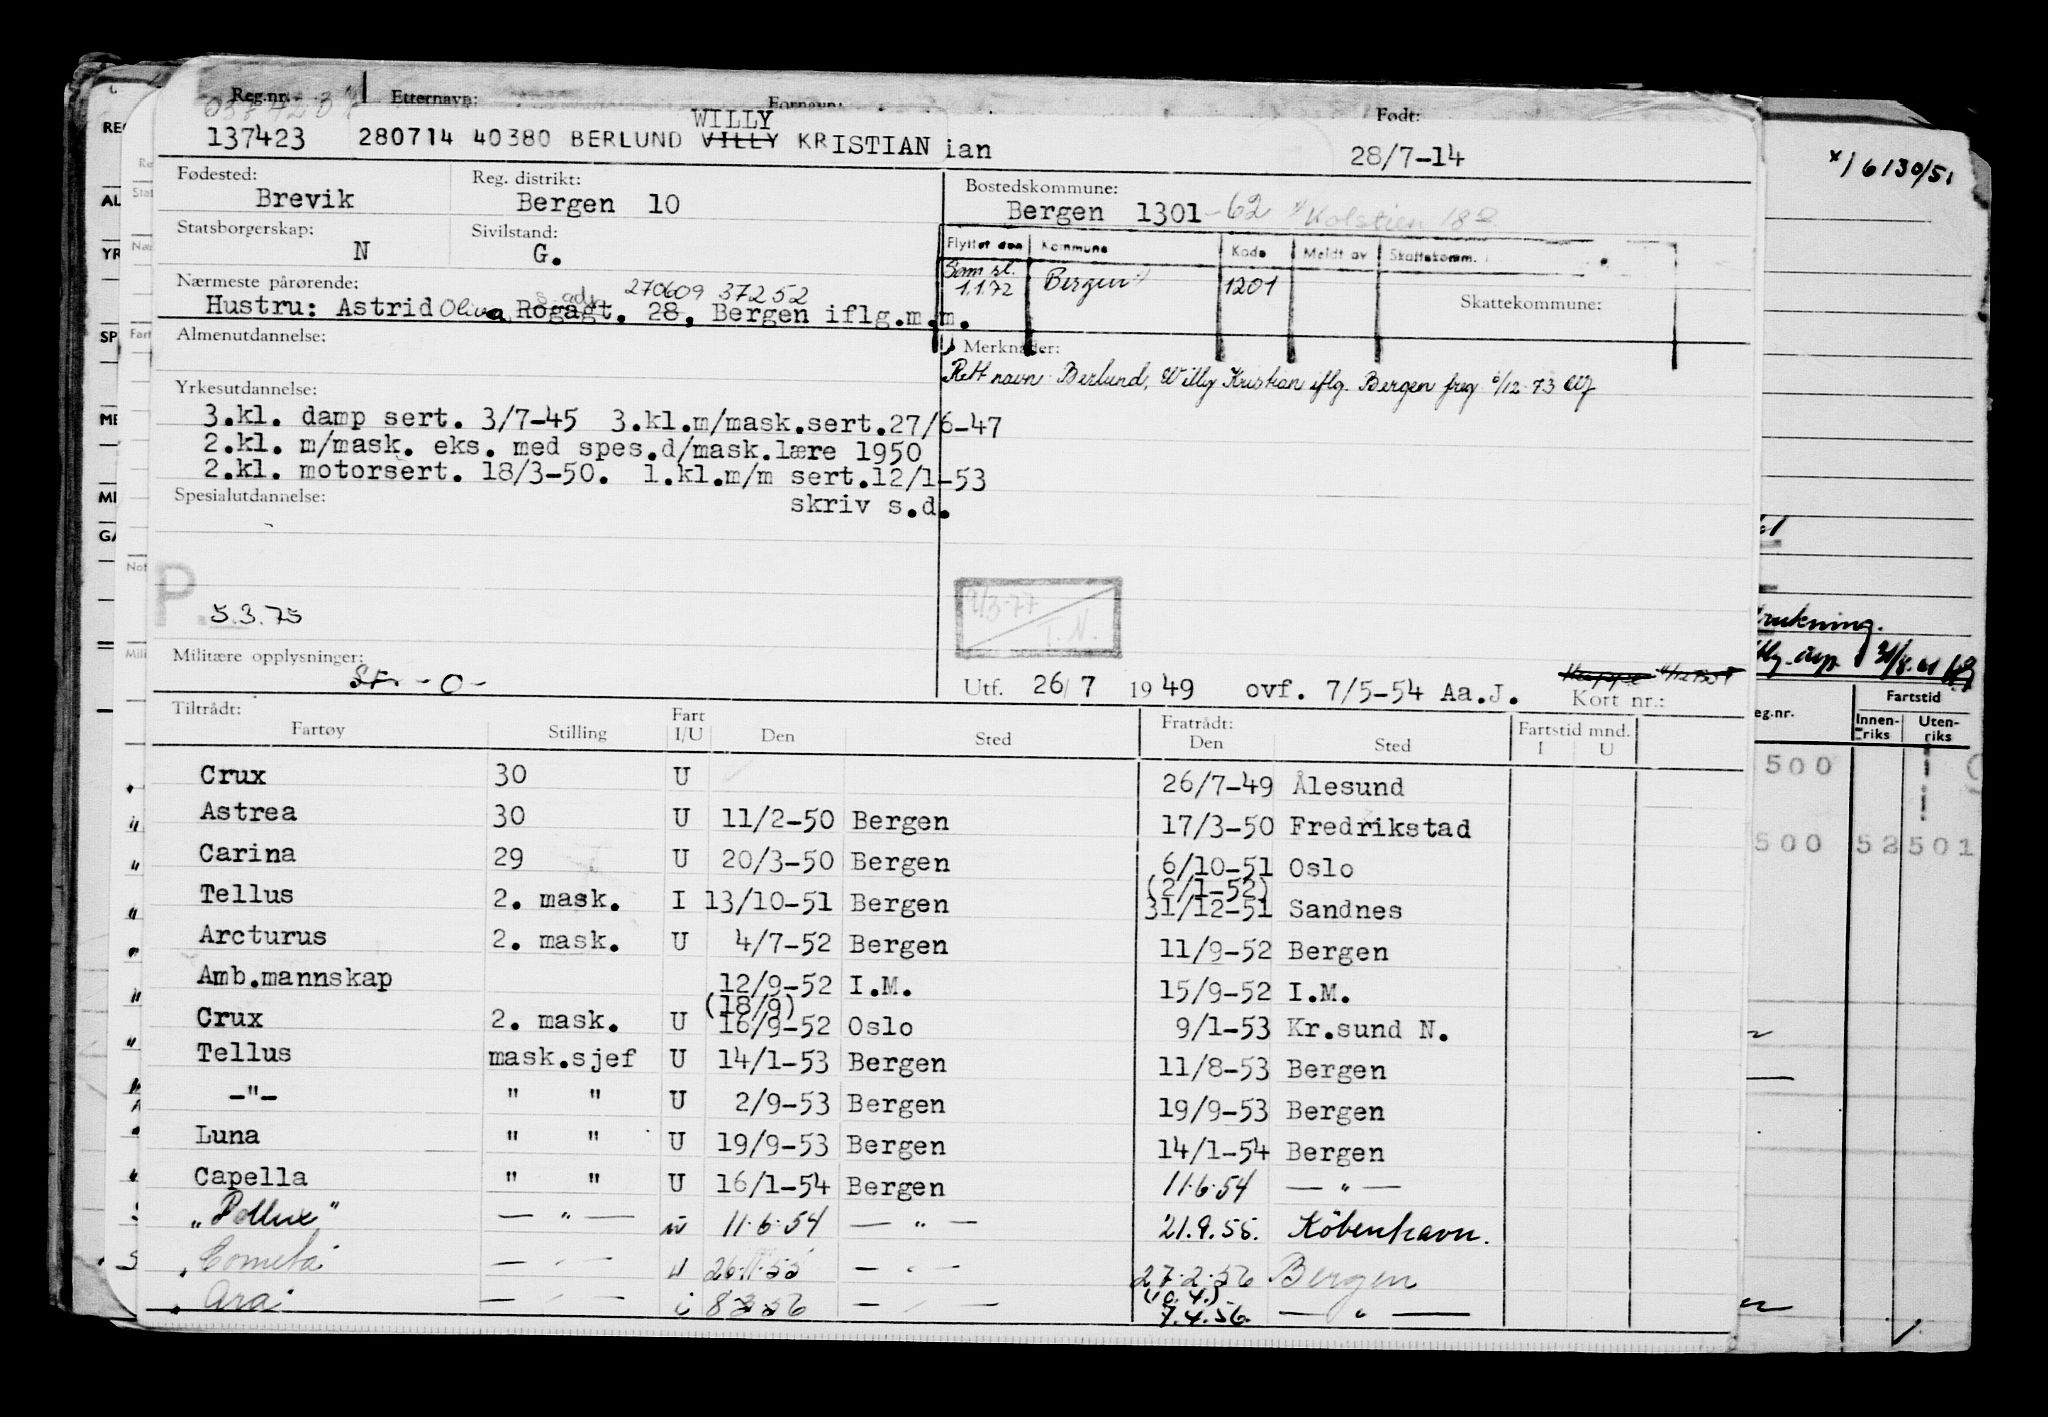 Reg.nr. Etternavn: Fornavn: Født:
WILLY
137423 280714 40380 BERLUND VILLY KRISTIAN ian 28/7-14
Fødested: Reg. distrikt: Bostedskommune:
Brevik Bergen 10 Bergen 1301-62 Kolstien 18
Statsborgerskap: Sivilstand:
N G.
Flyttet den Kommune Kode Meldt av Skattekomm.
Sam sl. 1.1.72 Bergen 1201
Skattekommune:
Nærmeste pårørende: s. adr. 270609 37252
Hustru: Astrid Oliva Rogagt. 28, Bergen iflg.m.m.
Almenutdannelse: Merknader:
Rett navn Berlund, Willy Kristian iflg. Bergen freg 6/12-73
Yrkesutdannelse:
3.kl. damp sert. 3/7-45 3.kl.m/mask.sert.27/6-47
2.kl. m/mask. eks. med spes.d/mask.lære 1950
2.kl. motorsert. 18/3-50. 1.kl.m/m sert.12/1-53
Spesialutdannelse: skriv s.d.
P. 5.3.75
9/3-77
T.N.
Militære opplysninger:
Str - 0 -
Utf. 26/7 1949 ovf. 7/5-54 Aa.J. Kort nr.:
Tiltrådt: Fart Fratrådt: Fartstid mnd.
Fartøy Stilling I/U Den Sted Den Sted I U
Crux 30 U 26/7-49 Ålesund
Astrea 30 U 11/2-50 Bergen 17/3-50 Fredrikstad
Carina 29 U 20/3-50 Bergen 6/10-51 Oslo
(2/1-52)
Tellus 2. mask. I 13/10-51 Bergen 31/12-51 Sandnes
Arcturus 2. mask. U 4/7-52 Bergen 11/9-52 Bergen
Amb.mannskap 12/9-52 I.M. 15/9-52 I.M.
(18/9)
Crux 2. mask. U 16/9-52 Oslo 9/1-53 Kr.sund N.
Tellus mask.sjef U 14/1-53 Bergen 11/8-53 Bergen
-"- " " U 2/9-53 Bergen 19/9-53 Bergen
Luna " " U 19/9-53 Bergen 14/1-54 Bergen
Capella " " U 16/1-54 Bergen 11.6.54 — " —
"Pollux" — " — u 11.6.54 — " — 21.9.55. København.
Cometa — " — u 26.11.55 — " — 27.2.56 Bergen
(10.4.)
Ara — " — i 8.3.56 — " — 7.4.56. — " —
*/ 6130/51
31/8.61
Fartstid
eg.nr. Innen-riks Uten-riks
500
500 52 501